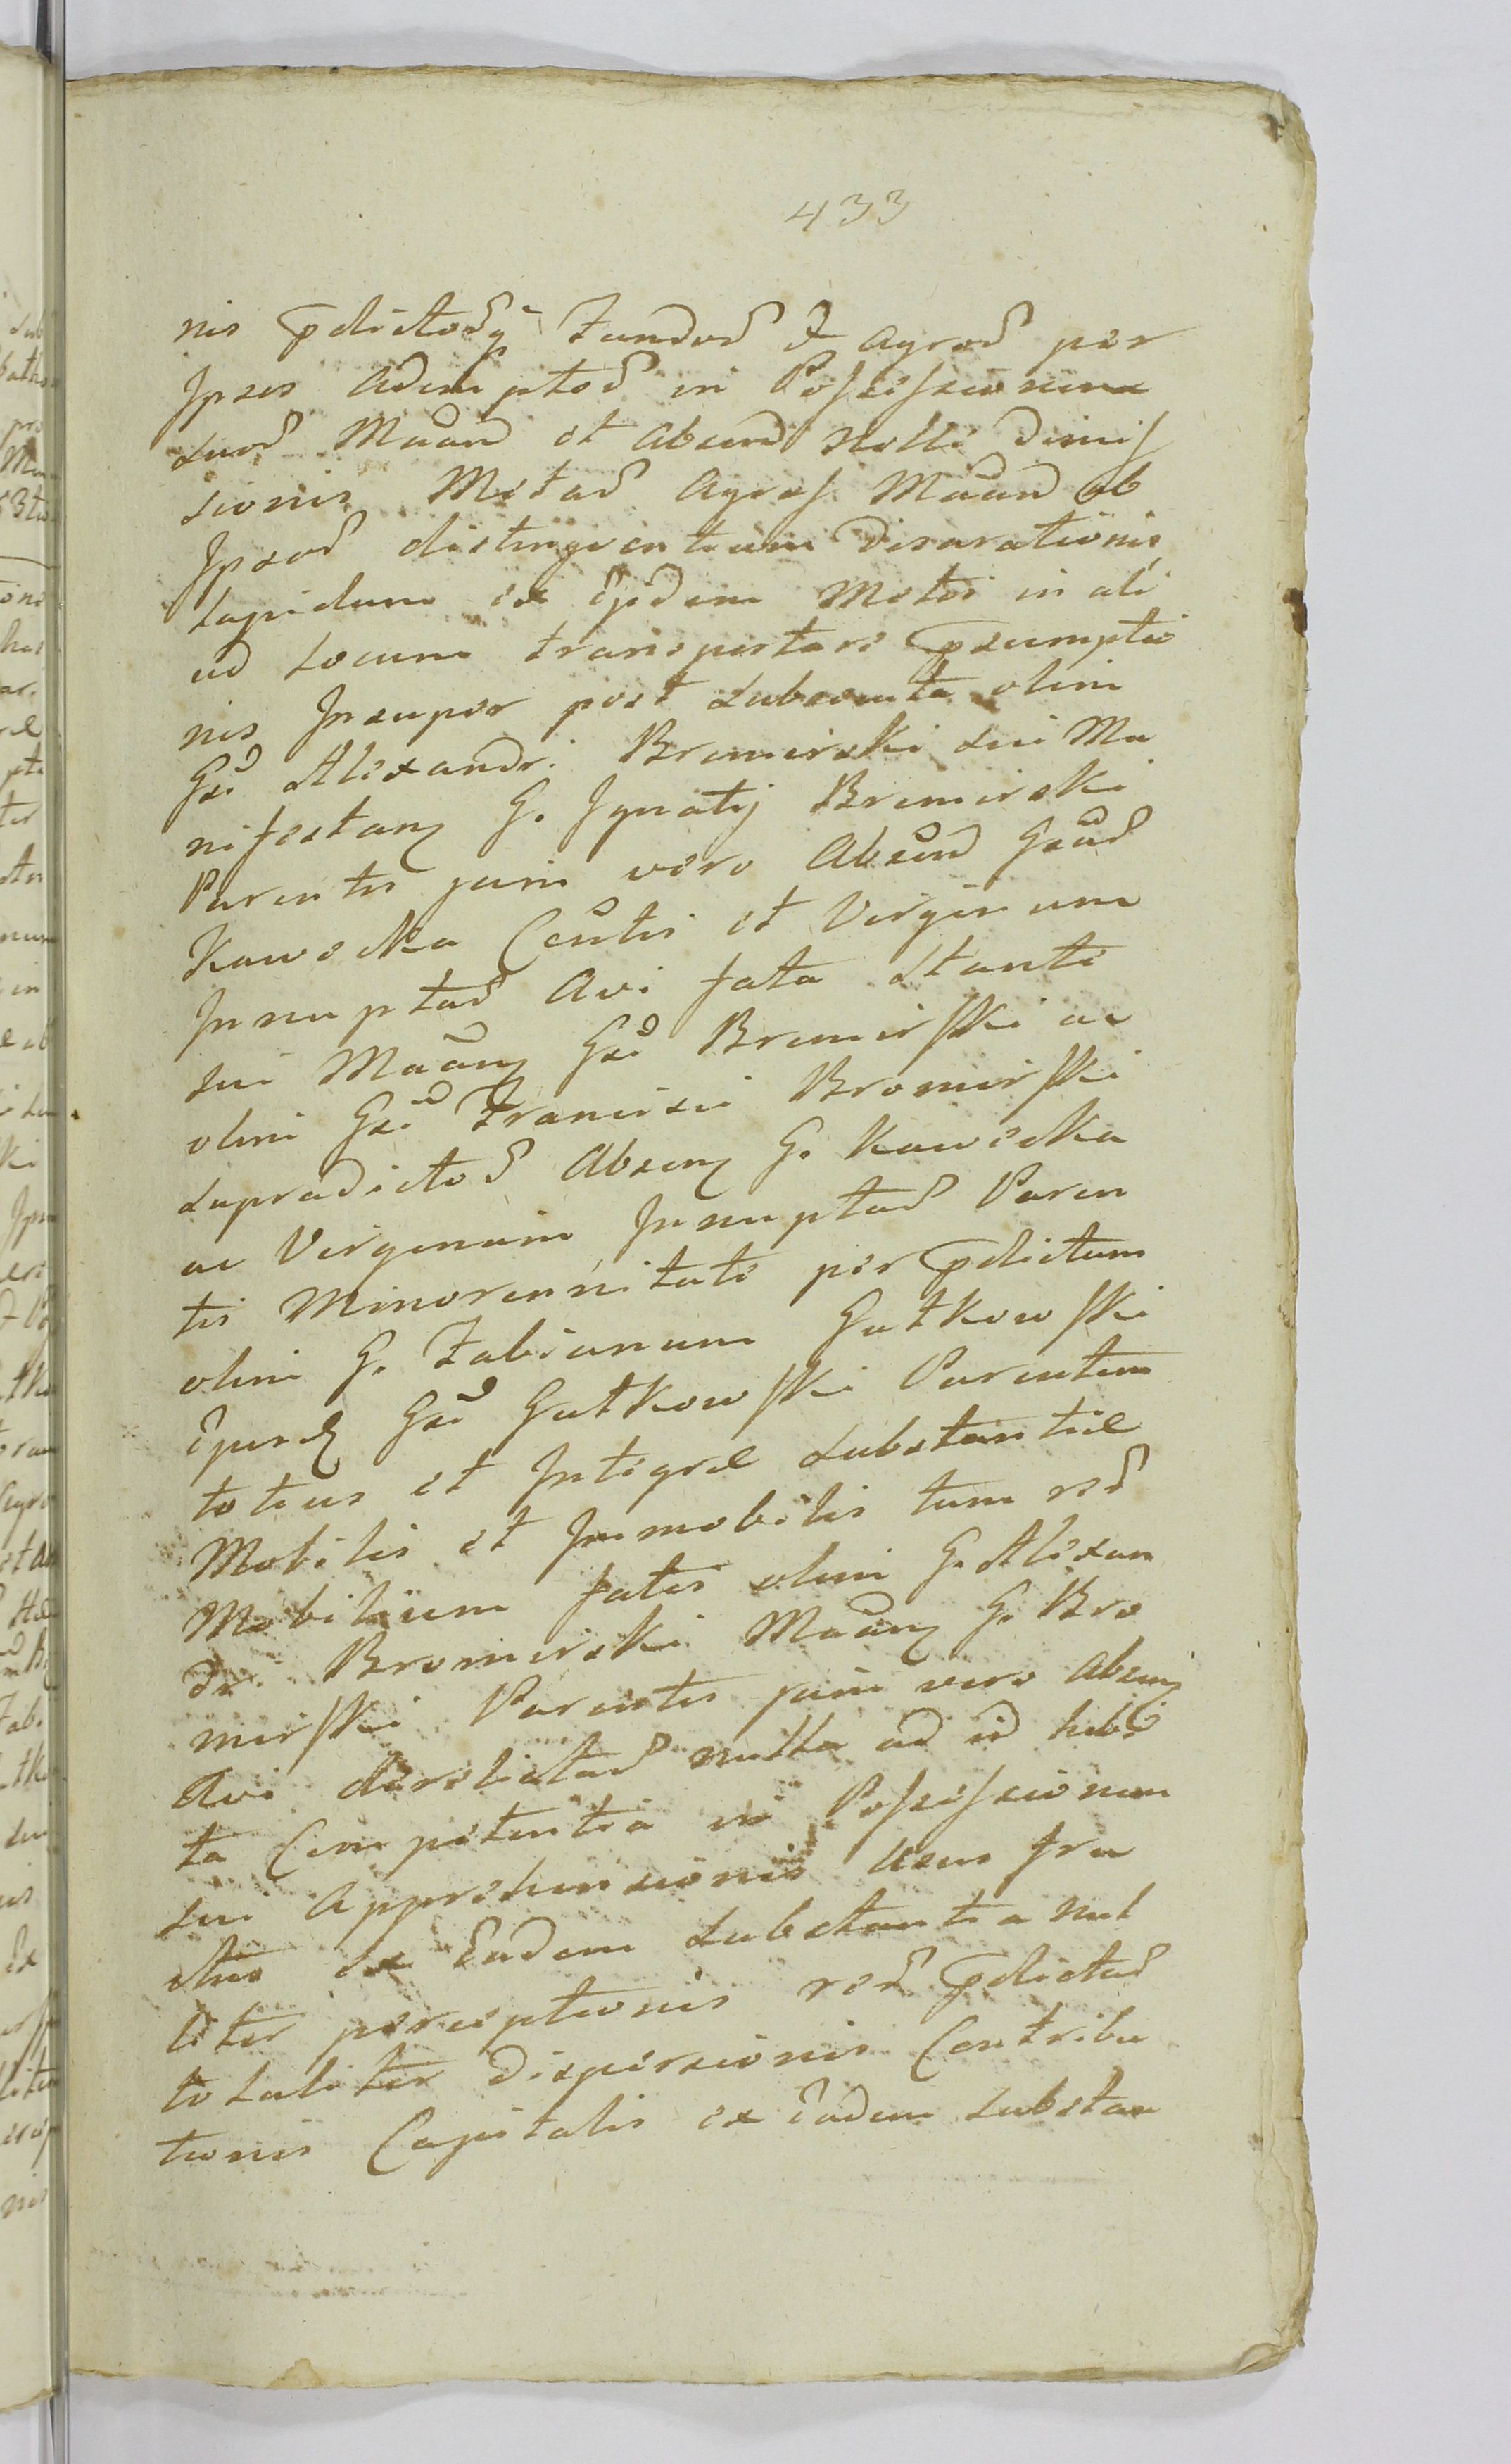 433
nis pdictorq Fundor et Agror per
Ipsos Ademptor in Possessionem
suor Maan et Absen Nolle dimis
sionis Metar Agros Maan ab
Ipsor distingventium Disrationis
Lapidum ex Ejsdem Metis in ali
ud Locum transportare psumptio
nis Insuper post Subsecuta olim
Gsi Alexandri Bromirski sui Ma
nifestanq G. Ignatij Bromirski
Parentis jam vero Absen Gsar
Kawecka Cautis et Virginum
Innuptar Avi fata Stante
sui Maanq Gsi Bromirski ac
olim Gsi Francisci Bromirski
Supradictor Absenq G. Kawecka
ac Virginum Innuptar Paren
tis Minorennitate per pdictum
olim G. Fabianum Gutkowski
Ejusdq Gsi Gutkowski Parentem
totius et Integræ Substantiæ
Mobilis et Immobilis tum rer
Mobilium fatis olim G. Alexan
dri Bromirski Maanq G. Bro
mirski Parentis jam vero Absenq
Avi derelictar nulla ad id habi
ta Competentia in Possessionem
sui Apprehensionis Usus fru
ctus ex Eadem Substantia nul
liter perceptionis rer pdictar
totaliter dispersionis Contribu
tionis Capitalis ex Eadem Substan